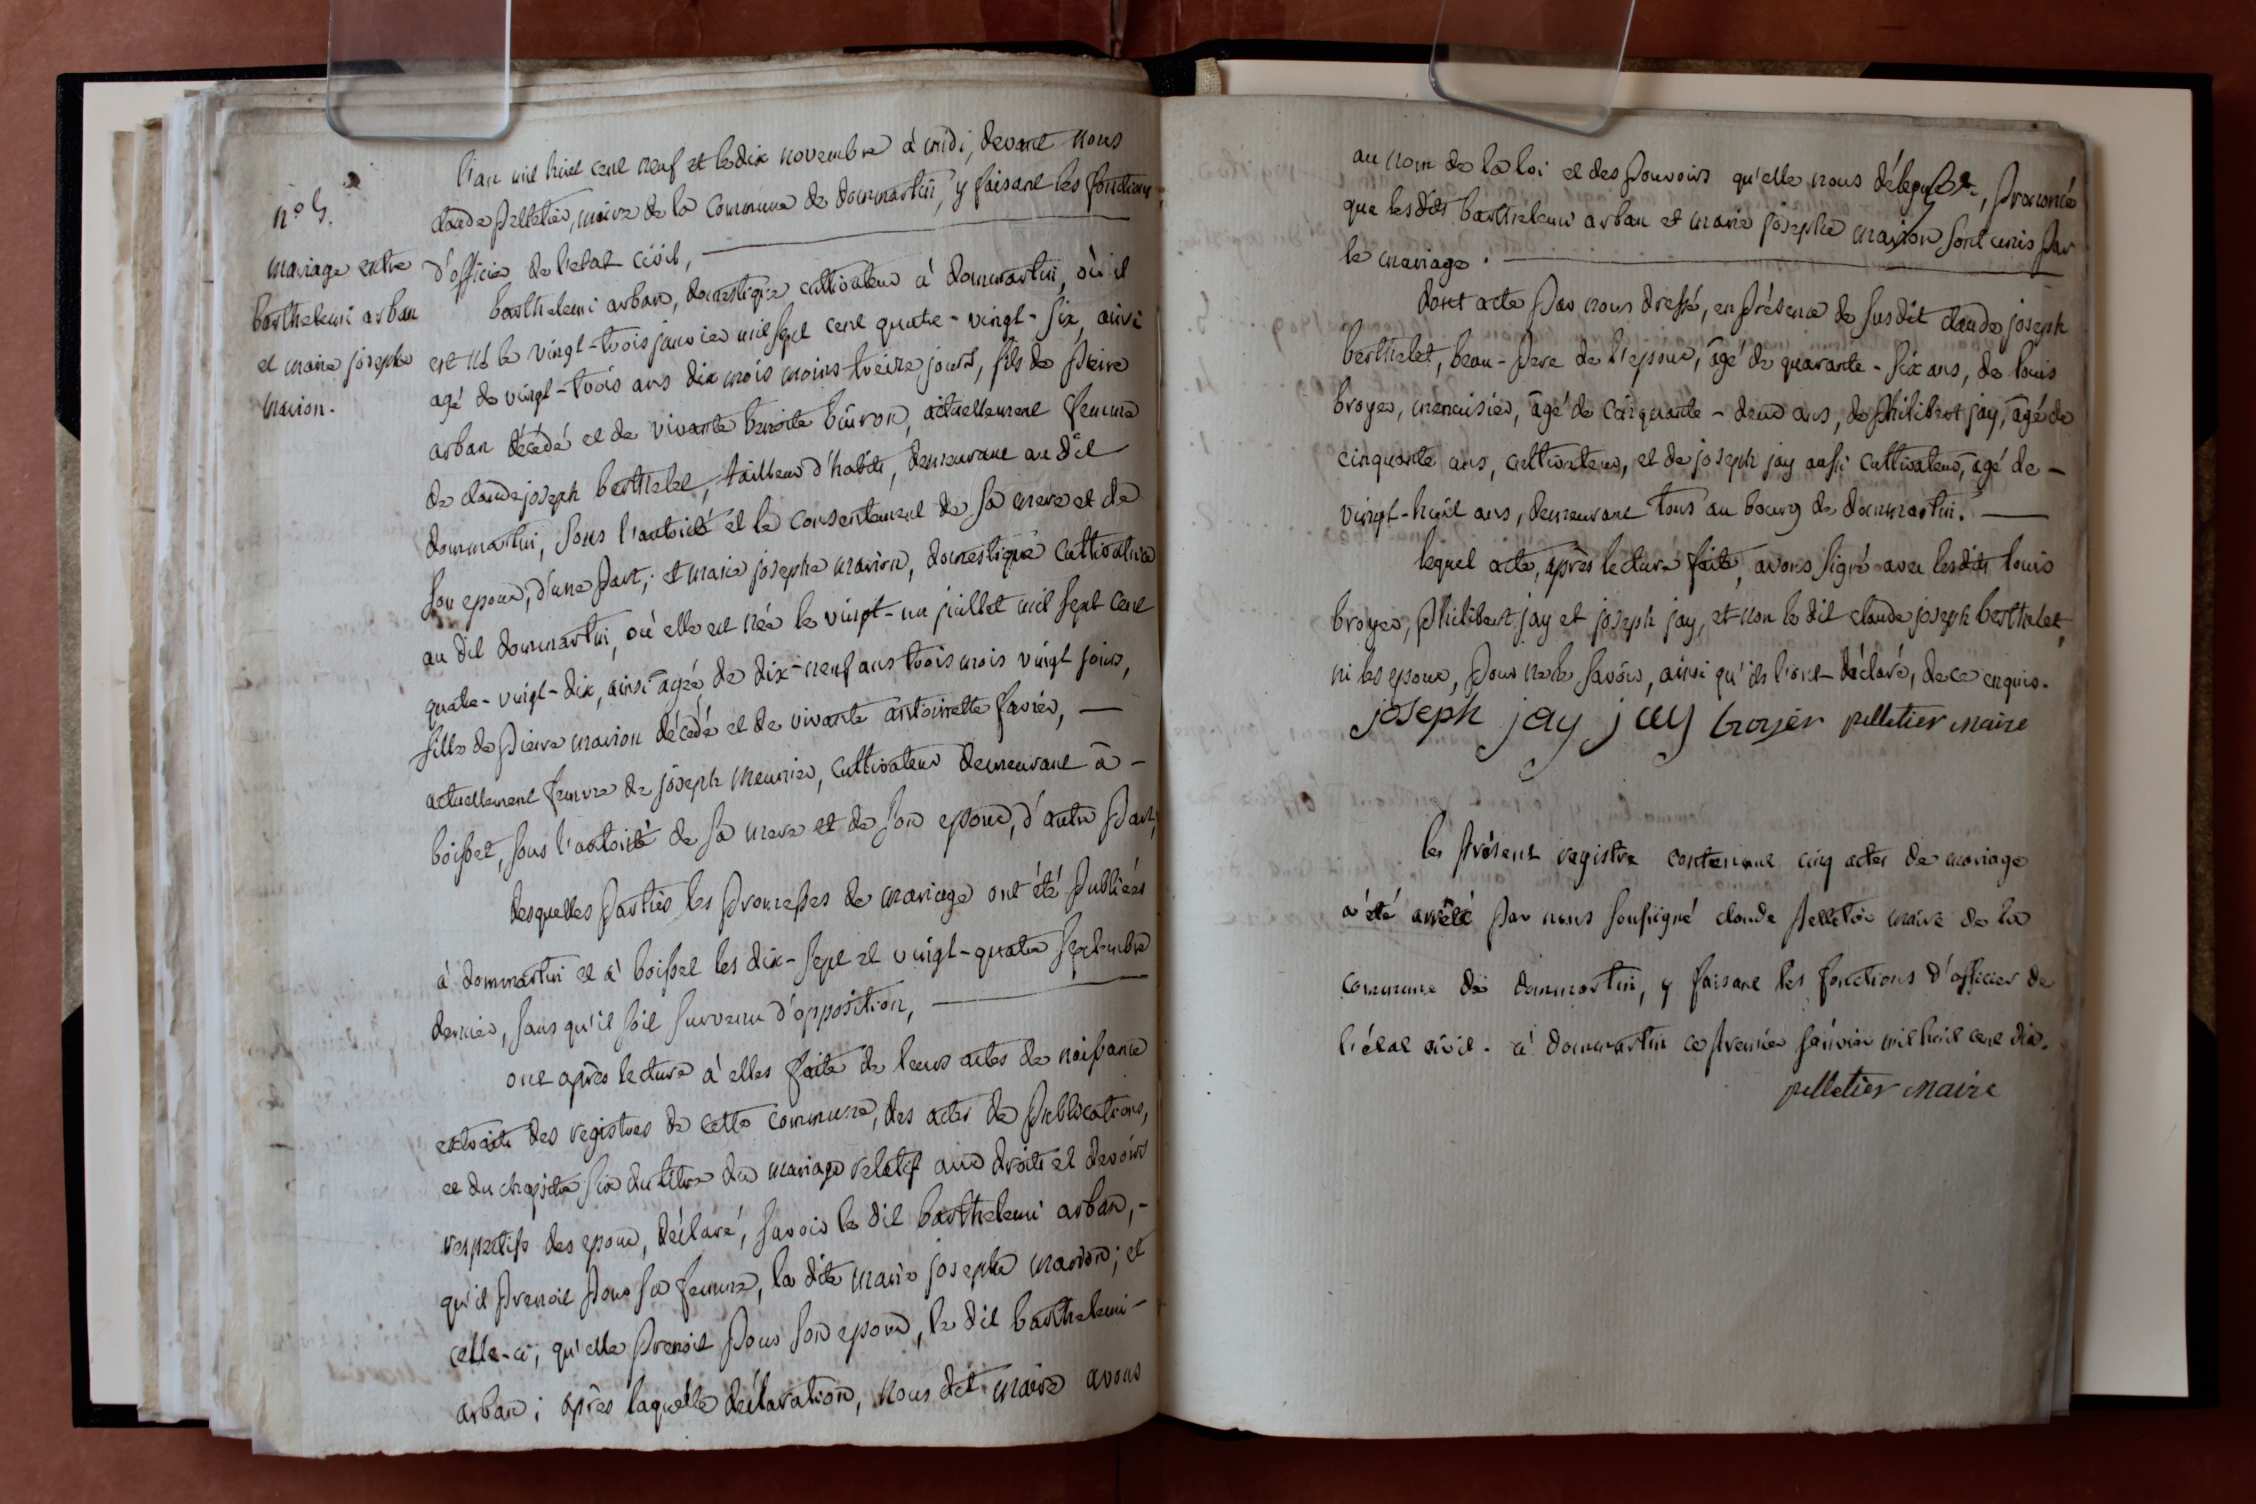 n.° 5.
mariage entre
barthelemi arban
et marie josephe
marion.
l'an mil huit cent neuf et le dix novembre à midi, devant nous
claude pelletier, maire de la commune de dommartin, y faisant les fonctions
d'officier de l'etat civil,
barthelemi arban, domestique cultivateur à dommartin, où il
est né le vingt-trois janvier mil sept cent quatre-vingt-six, ainsi
agé de vingt-trois ans dix mois moins treize jours, fils de pierre
arban décédé et de vivante benoite buiron, actuellement femme
de claude joseph berthelet, tailleur d'habits, demeurant au dit
dommartin, sous l'autorité et le consentement de sa mere et de
son epoux, d'une part; et marie josephe marion, domestique cultivatrice
au dit dommartin, où elle est née le vingt-un juillet mil sept cent
quatre-vingt-dix, ainsi agée de dix-neuf ans trois mois vingt jours,
fille de pierre marion décédé et de vivante antoinette favier, —
actuellement femme de joseph meunier, cultivateur demeurant à -
boisset, sous l'autorité de sa mere et de son epoux, d'autre part,
desquelles parties les promesses de mariage ont été publiées
à dommartin et à boisset les dix-sept et vingt-quatre septembre
dernier, sans qu'il soit survenu d'opposition,
ont après lecture à elles faite de leurs actes de naissance
extraits des registres de cette commune, des actes de publications,
et du chapitre six du titre du mariage relatif aux droits et devoirs
respectifs des epoux, déclaré, savoir le dit barthelemi arban, -
qu'il prenoit pour sa femme, la dite marie josephe marion; et
celle-ci, qu'elle prenoit pour son epoux, le dit barthelemi -
arban; après laquelle déclaration, nous dit maire avons
au nom de la loi et des pouvoirs qu'elle nous délegue, prononcé
que lesdits barthelemi arban et marie josephe marion sont unis par
le mariage.
dont acte par nous dressé, en présence de susdit claude joseph
berthelet, beau-pere de l'epoux, âgé de quarante-six ans, de louis
broyer, menuisier, âgé de cinquante-deux ans, de philibert jay, âgé de
cinquante ans, cultivateur, et de joseph jay aussi cultivateur, âgé de -
vingt-huit ans, demeurant tous au bourg de dommartin. —
lequel acte, après lecture faite, avons signé avec lesdits louis
broyer, philibert jay et joseph jay, et non le dit claude joseph berthelet,
ni les epoux, pour ne le savoir, ainsi qu'ils l'ont déclaré, de ce enquis.
joseph jay jay broyer pelletier maire
le présent registre contenant cinq actes de mariage
a été arrêté par nous soussigné claude pelletier maire de la
commune de dommartin, y faisant les fonctions d'officier de
l'état civil. à dommartin ce premier janvier mil huit cent dix.
pelletier maire